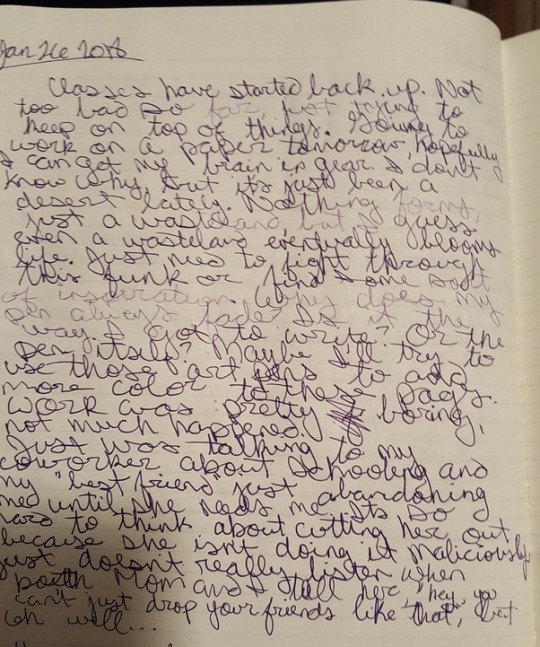 Jan 26 2018
Classes have started back up. Not
too bad so far just trying to
keep on top of things. Going to
work on a paper tomorrow, hopefully
I can get my brain in gear I don't
know why, but it's just been a
desert lately. Nothing forms,
just a wasteland but I guess
even a wasteland eventually blooms
life. Just need to fight through
this funk or find some sort
of inspiration. Why does my
pen always fade? Is it the
way I got to write? Or the
pen itself? Maybe I'll try to
use those art pens to add
more color to these pags.
Work was pretty boring,
not much happened.
Just was talking to my
coworker about schooling and
my "best friend" just abandoning
me until she needs me. Its so
hard to think about cutting her out
because she isn't doing it maliciously
just doesn't really listen when
both Mom and I tell her, "hey you
can't just drop your friends like that", but
oh well...